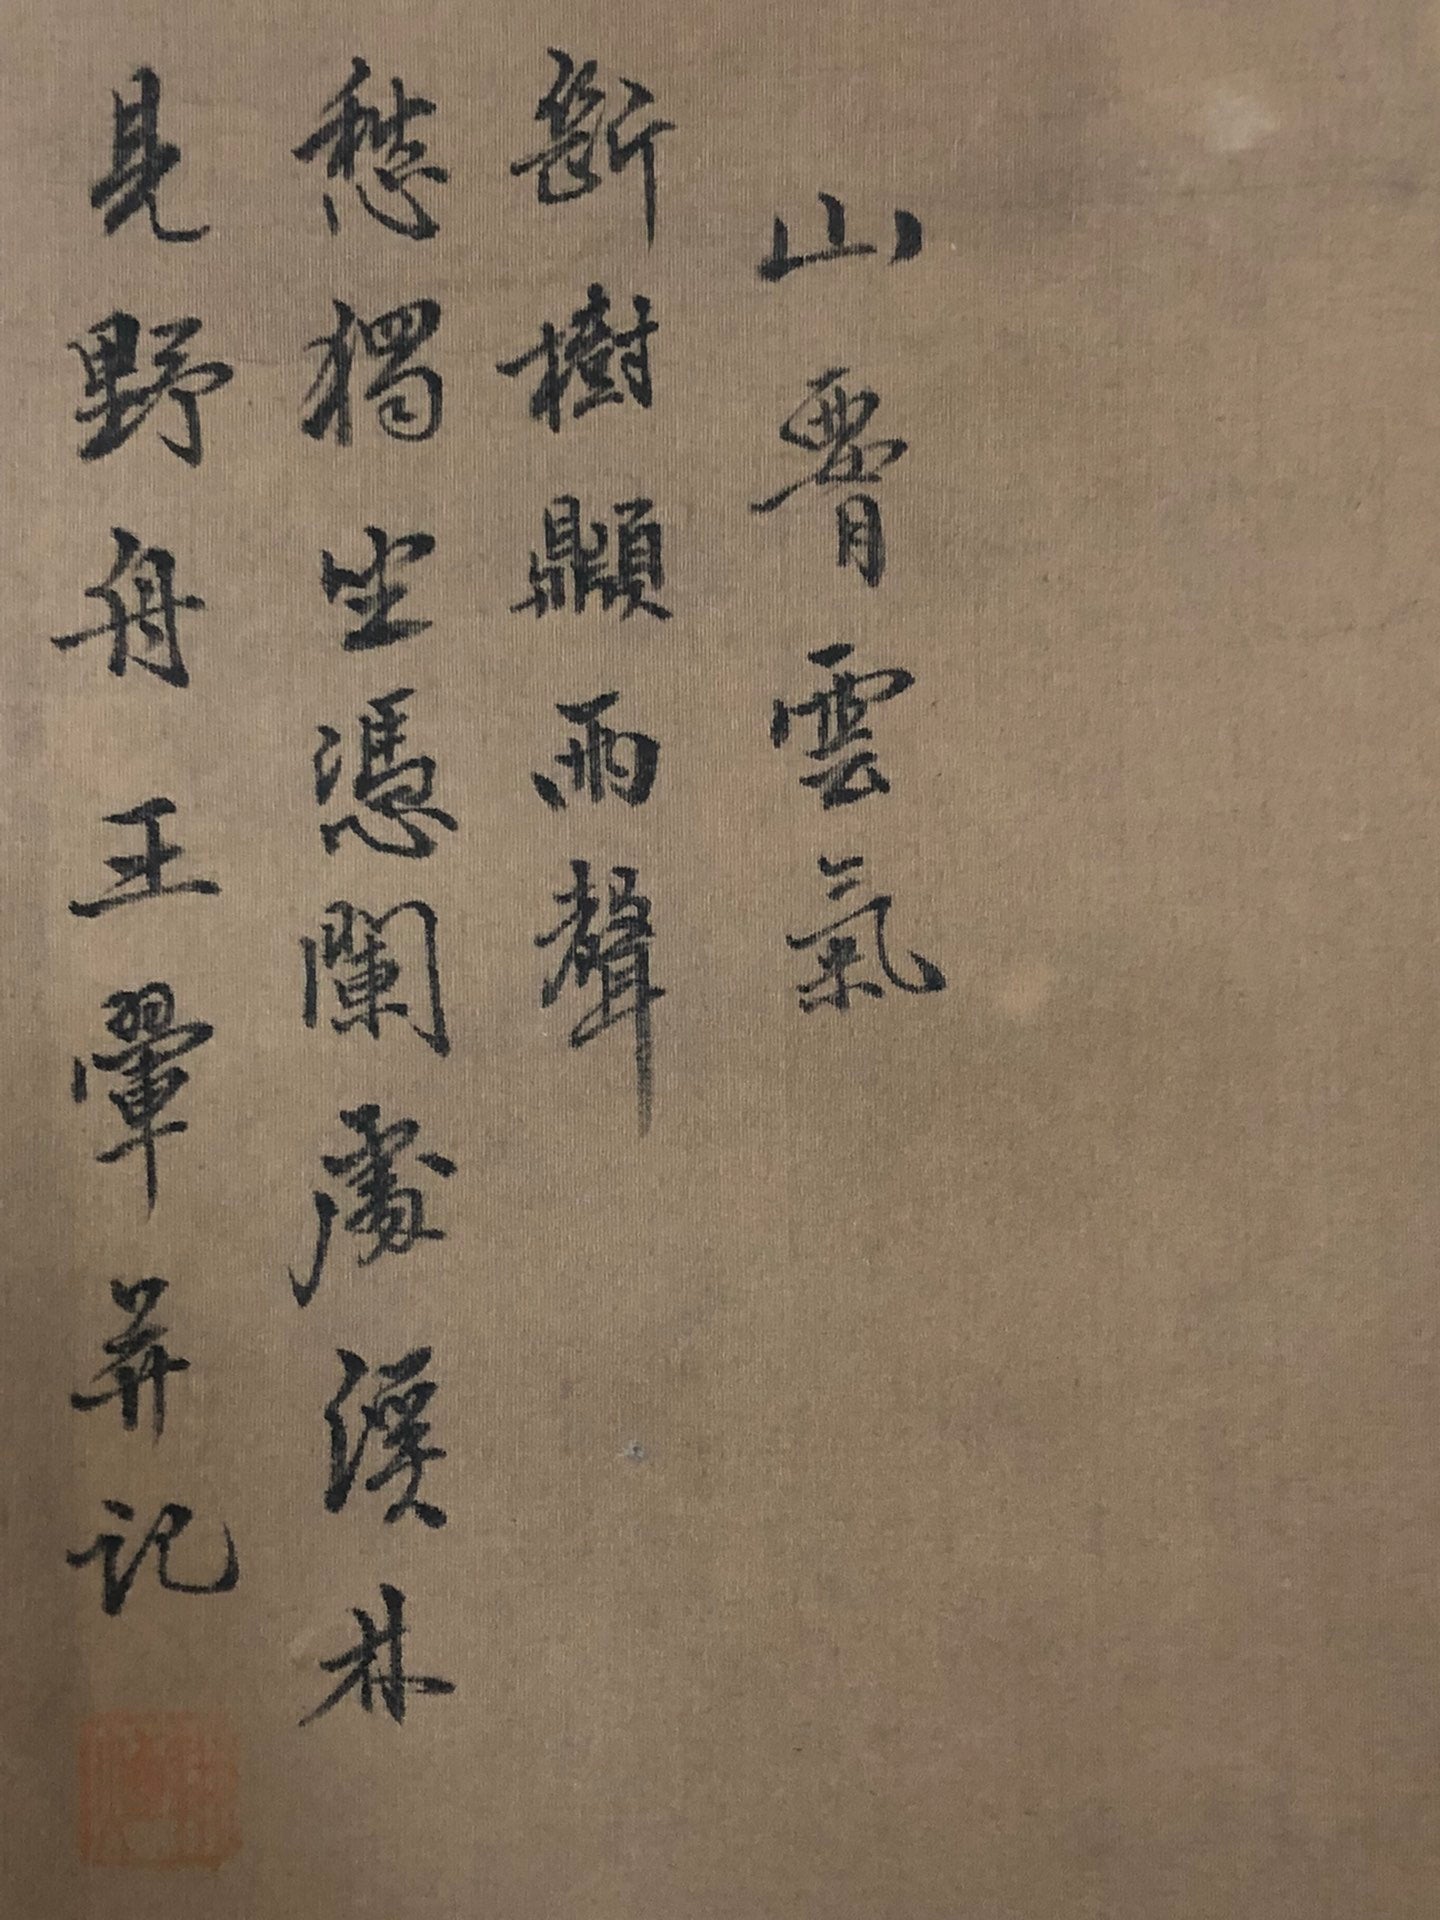 山脊雲氣
斷樹顛雨聲
愁獨坐憑闌處溪林
見野舟王翬并記